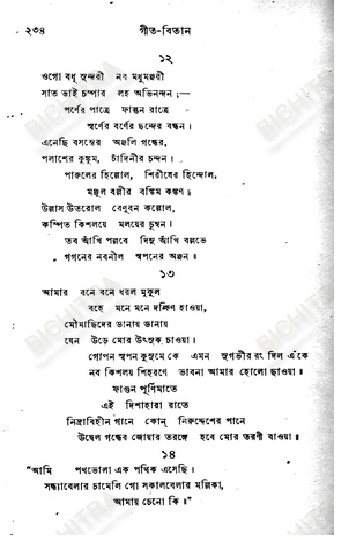 ২৩৪ গীত-বিতান
১২
ওগো বধূ সুন্দরী নব মধুমঞ্জরী
সাত ভাই চম্পার লহ অভিনন্দন ;—
পর্ণের পাত্রে ফাল্গুন রাত্রে
স্বর্ণের বর্ণের ছন্দের বন্ধন ।
এনেছি বসন্তের অঞ্জলি গন্ধের,
পলাশের কুঙ্কুম, চাঁদিনীর চন্দন ।
পারুলের হিল্লোল, শিরীষের হিন্দোল,
মঞ্জুল বল্লীর বঙ্কিম কঙ্কণ ;
উল্লাস উতরোল বেণুবন কল্লোল,
কম্পিত কিশলয়ে মলয়ের চুম্বন ।
তব আঁখি পল্লবে দিনু আঁখি বল্লভে
গগনের নবনীল স্বপনের অঞ্জন ।
১৩
আমার বনে বনে ধরল মুকুল
বহে মনে মনে দক্ষিণ হাওয়া,
মৌমাছিদের ডানায় ডানায়
যেন উড়ে মোর উৎসুক চাওয়া ।
গোপন স্বপন কুসুমে কে এমন সুগভীর রং দিল এঁকে
নব কিশলয় শিহরণে ভাবনা আমার হোলো ছাওয়া ॥
ফাগুন পূর্ণিমাতে
এই দিশাহারা রাতে
নিদ্রাবিহীন গানে কোন্ নিরুদ্দেশের পানে
উদ্বেল গন্ধের জোয়ার তরঙ্গে হবে মোর তরণী বাওয়া ॥
১৪
"আমি পথভোলা এক পথিক এসেছি ।
সন্ধ্যাবেলার চামেলি গো সকালবেলার মল্লিকা,
আমায় চেনো কি ।"
BICHITRA